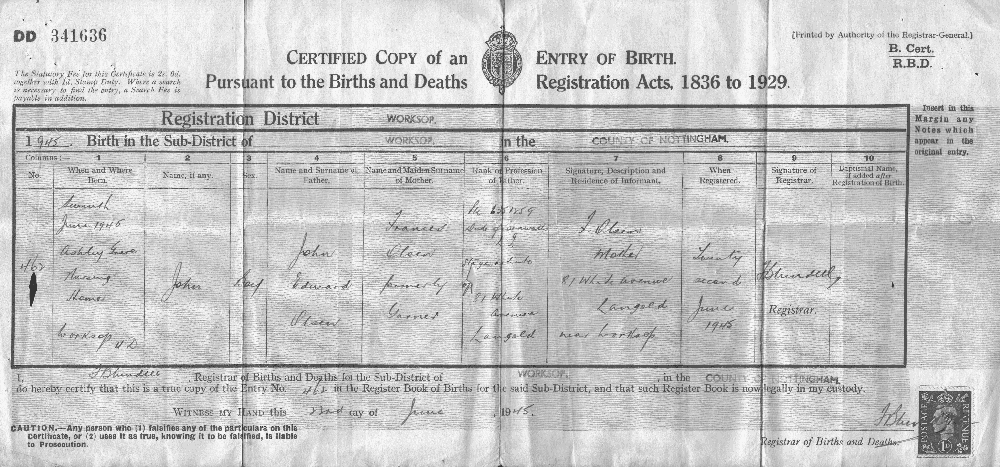 DD 341636
[Printed by Authority of the Registrar-General.]
B. Cert.
R.B.D.
CERTIFIED COPY of an ENTRY OF BIRTH.
Pursuant to the Births and Deaths Registration Acts, 1836 to 1929.
The Statutory Fee for this Certificate is 2s. 6d.
together with 1d. Stamp Duty. Where a search
is necessary to find the entry, a Search Fee is
payable in addition.
Insert in this
Margin any
Notes which
appear in the
original entry.
Registration District WORKSOP.
1945. Birth in the Sub-District of WORKSOP. in the COUNTY OF NOTTINGHAM.
Columns:— 1 2 3 4 5 6 7 8 9 10
No. When and Where Born. Name, if any. Sex. Name and Surname of Father. Name and Maiden Surname of Mother. Rank or Profession of Father. Signature, Description and Residence of Informant. When Registered. Signature of Registrar. Baptismal Name, if added after Registration of Birth.
June 1945
Ashley Grove
Nursing
Home
Worksop U.D.
John
Boy
John
Edward
Olsen
Frances
Olsen
formerly
81 White
Avenue
Langold
F. Olsen
Mother
81 White Avenue
Langold
near Worksop
Twenty
second
June
1945
Blundell
Registrar.
I, Blundell, Registrar of Births and Deaths for the Sub-District of WORKSOP., in the COUNTY OF NOTTINGHAM,
do hereby certify that this is a true copy of the Entry No. in the Register Book of Births for the said Sub-District, and that such Register Book is now legally in my custody.
WITNESS MY HAND this 22nd day of June, 1945.
CAUTION.—Any person who (1) falsifies any of the particulars on this
certificate, or (2) uses it as true, knowing it to be falsified, is liable
to Prosecution.
Registrar of Births and Deaths.
POSTAGE
REVENUE
1D